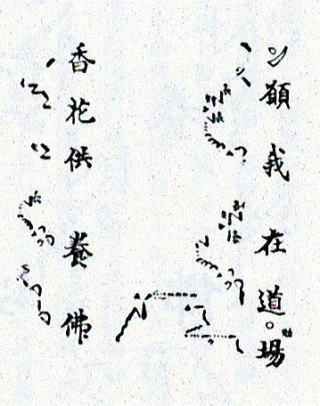 願我在道場
香花供養佛